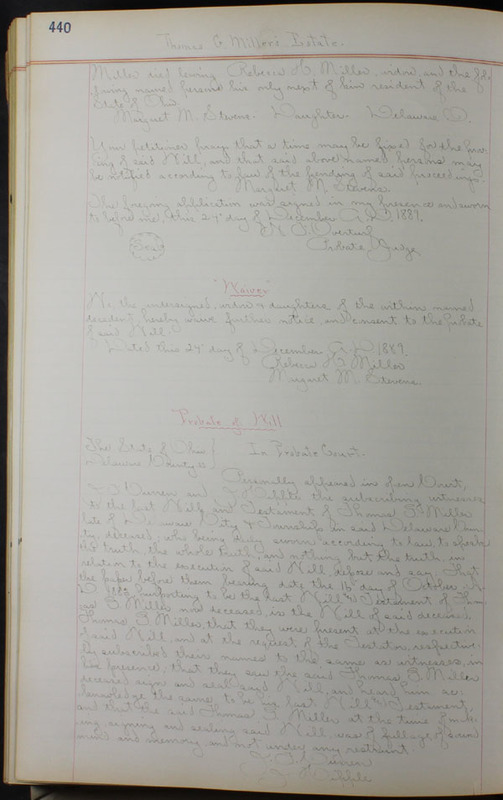 440
Thomas G. Miller's Estate.
Miller died leaving Rebecca H. Miller, widow, and the fol-
lowing named persons his only next of kin resident of the
State of O.
Margaret M. Stevens. Daughter. Delaware O.
Your petitioner prays that a time may be fixed for the prov-
ing of said Will, and that said above named persons may
be notified according to law of the pendency of said proceedings.
Margaret M. Stevens.
The foregoing application was signed in my presence and sworn
to before me, this 24" day of December A.D. 1889.
Seal
Probate Judge
"Waiver"
We, the undersigned, widow & daughters of the within named
decedent, hereby waive further notice, and consent to the probate
of said Will.
Dated this 24" day of December A.D. 1889.
Rebecca H. Miller
Margaret M. Stevens
Probate of Will
The State of Ohio
Delaware County ss
In Probate Court.
Personally appeared in open Court,
and the subscribing witnesses
to the last Will and Testament of Thomas G. Miller
late of Delaware City & Township in said Delaware Coun-
ty, deceased, who being duly sworn according to law to speak
the truth, the whole truth, and nothing but the truth, in
relation to the execution of said Will, depose and say, That
the paper before them bearing date the 16" day of October A.
D. purporting to be the last Will & Testament of Thom-
as G. Miller now deceased, is the Will of said deceased
Thomas G. Miller, that they were present at the execution
of said Will, and at the request of the Testator, respective-
ly subscribed their names to the same as witnesses, in
his presence; that they saw the said Thomas G. Miller
deceased sign and seal said Will, and heard him ac-
knowledge the same to be his last Will & Testament,
and that the said Thomas G. Miller at the time of mak-
ing, signing and sealing said Will, was of full age of sound
mind and memory, and not under any restraint.